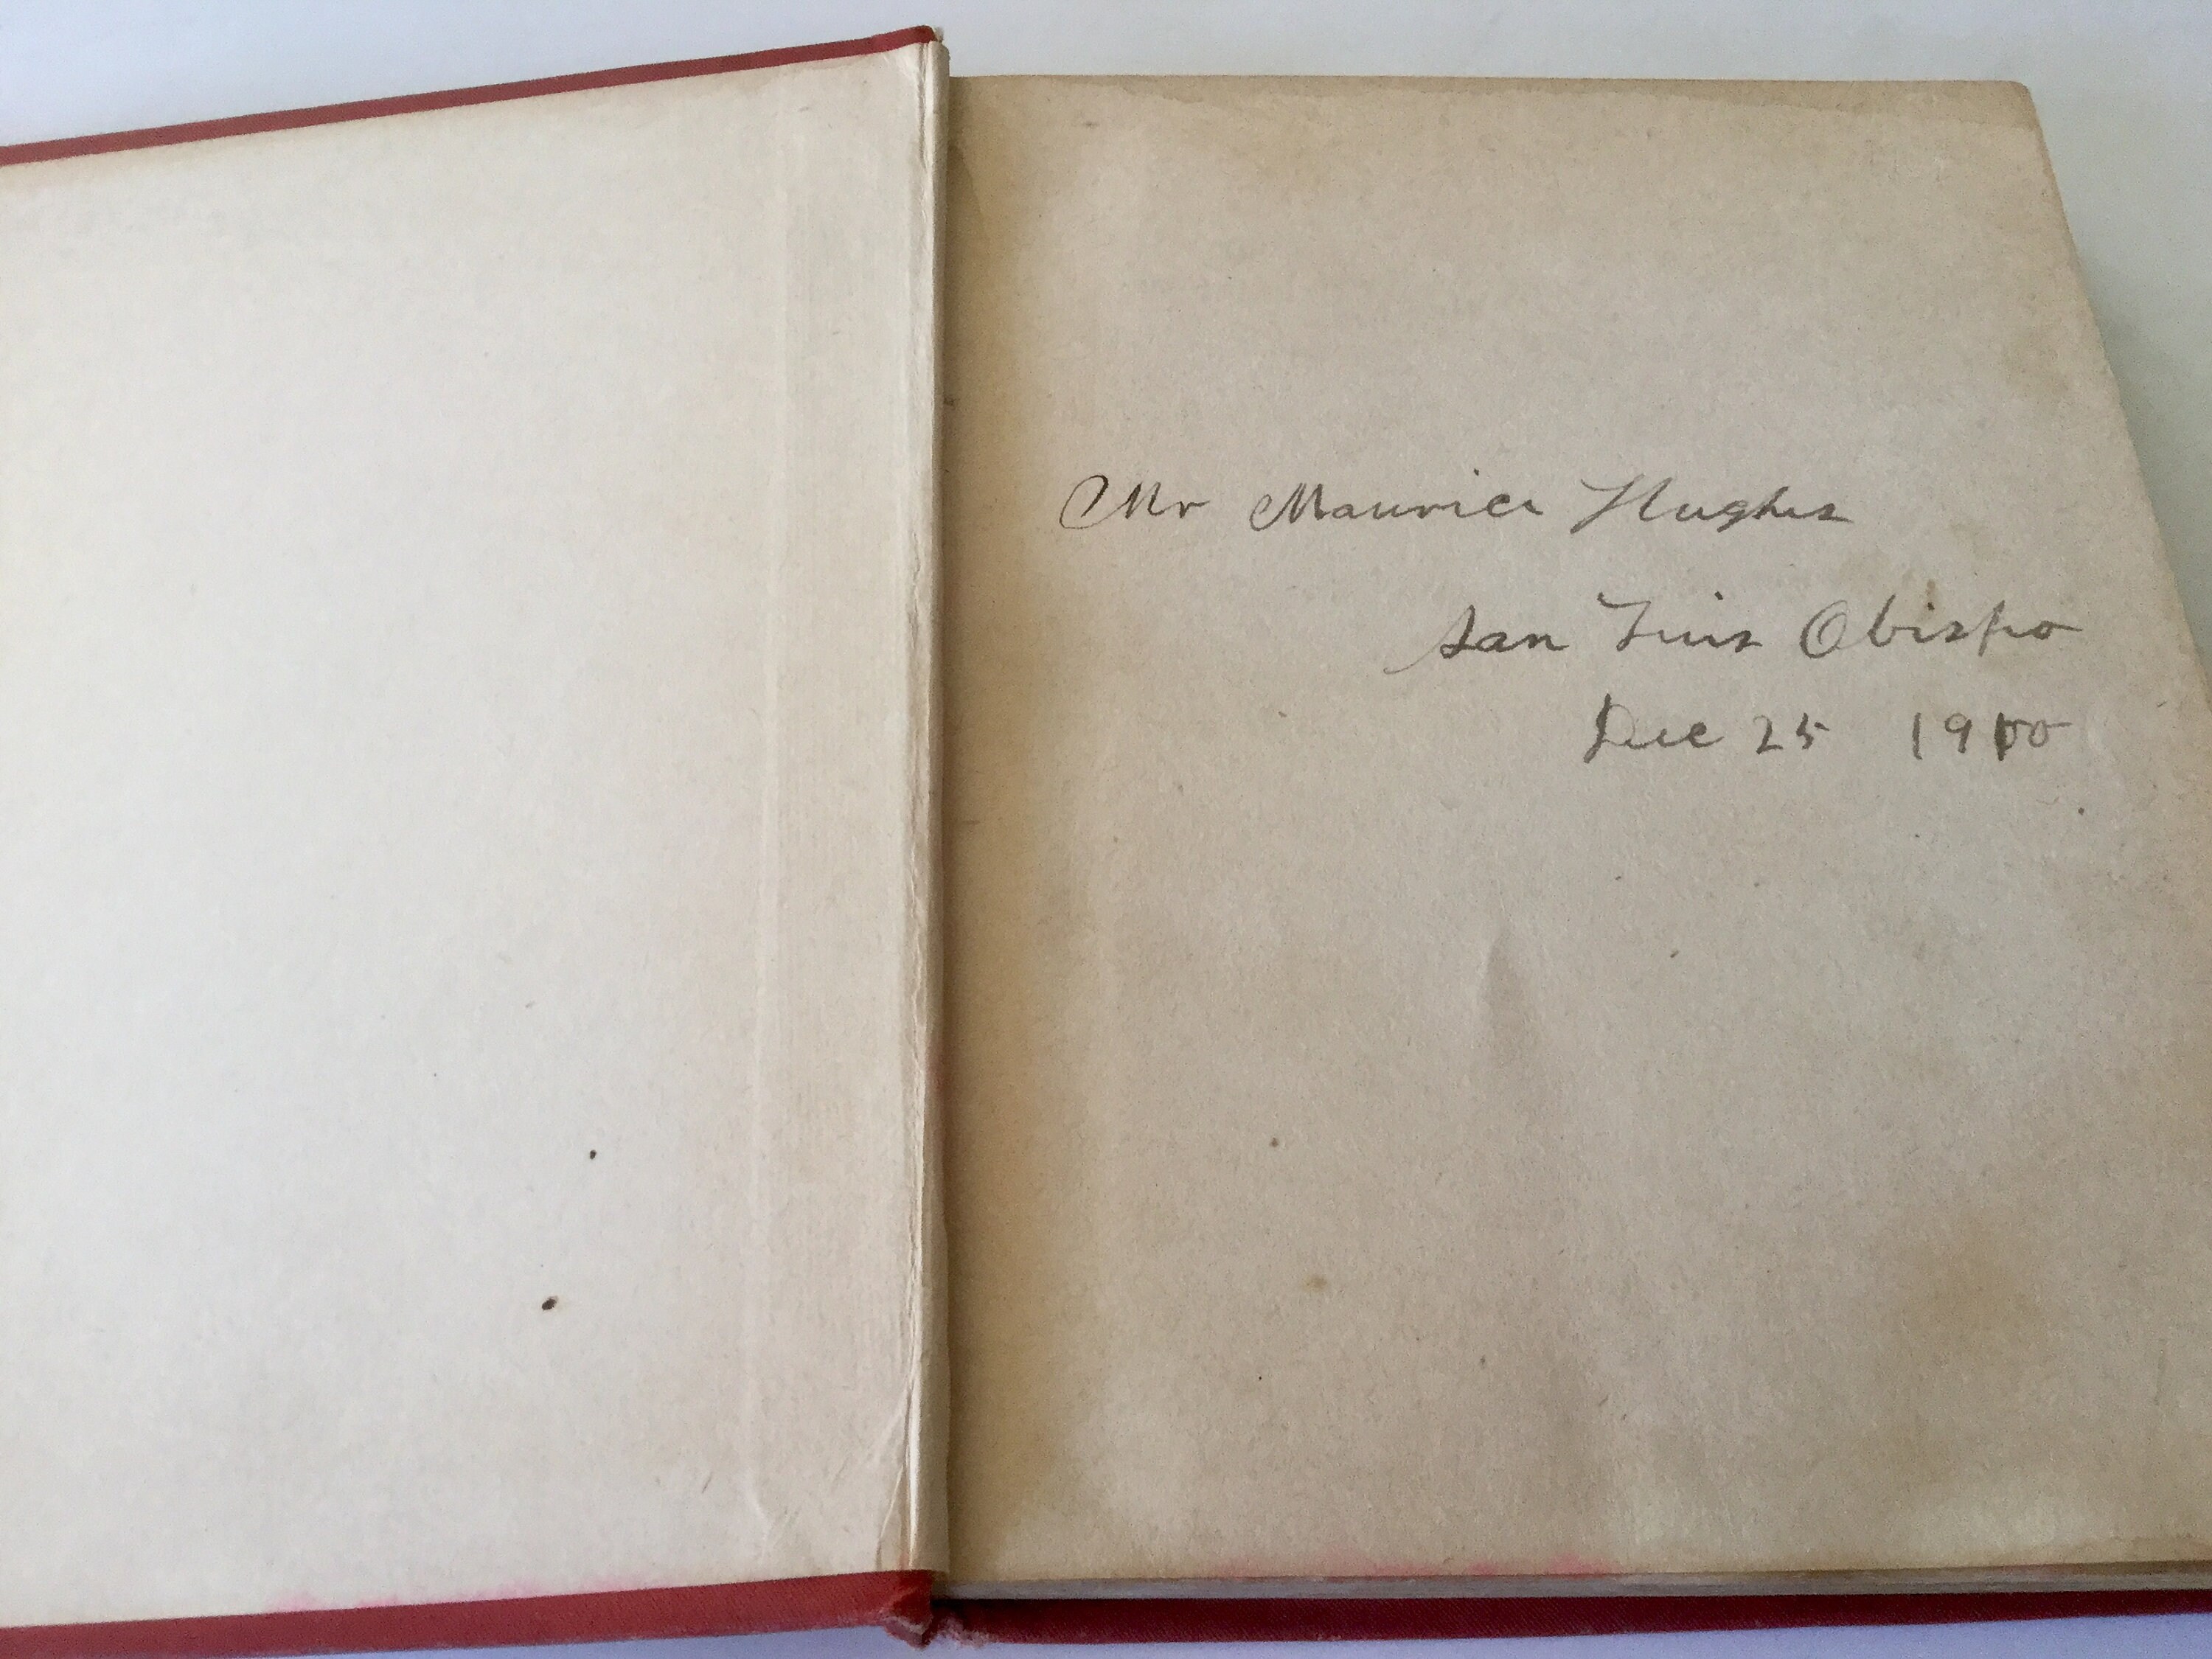 Mr Maurice Hughes
San Luis Obispo
Dec 25 1900